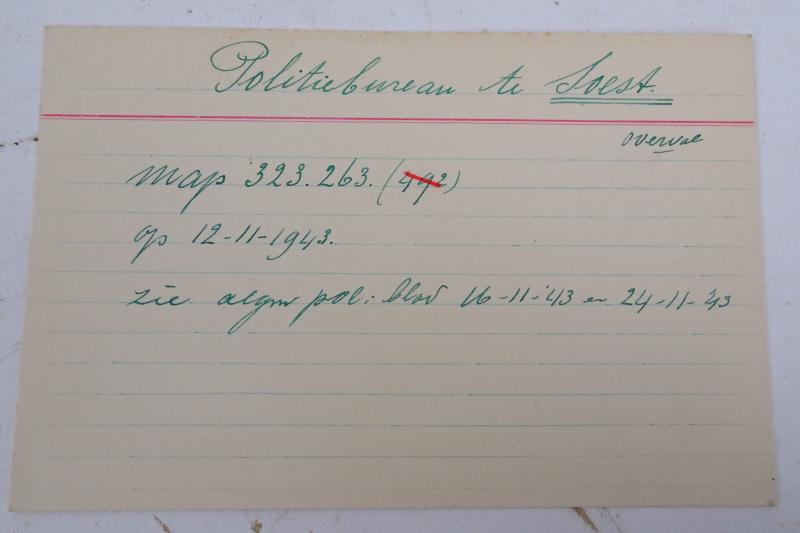 Politiebureau te Soest.
overval
map 323.263. (492)
op 12-11-1943.
zie algm pol: blad 16-11-'43 en 24-11-'43